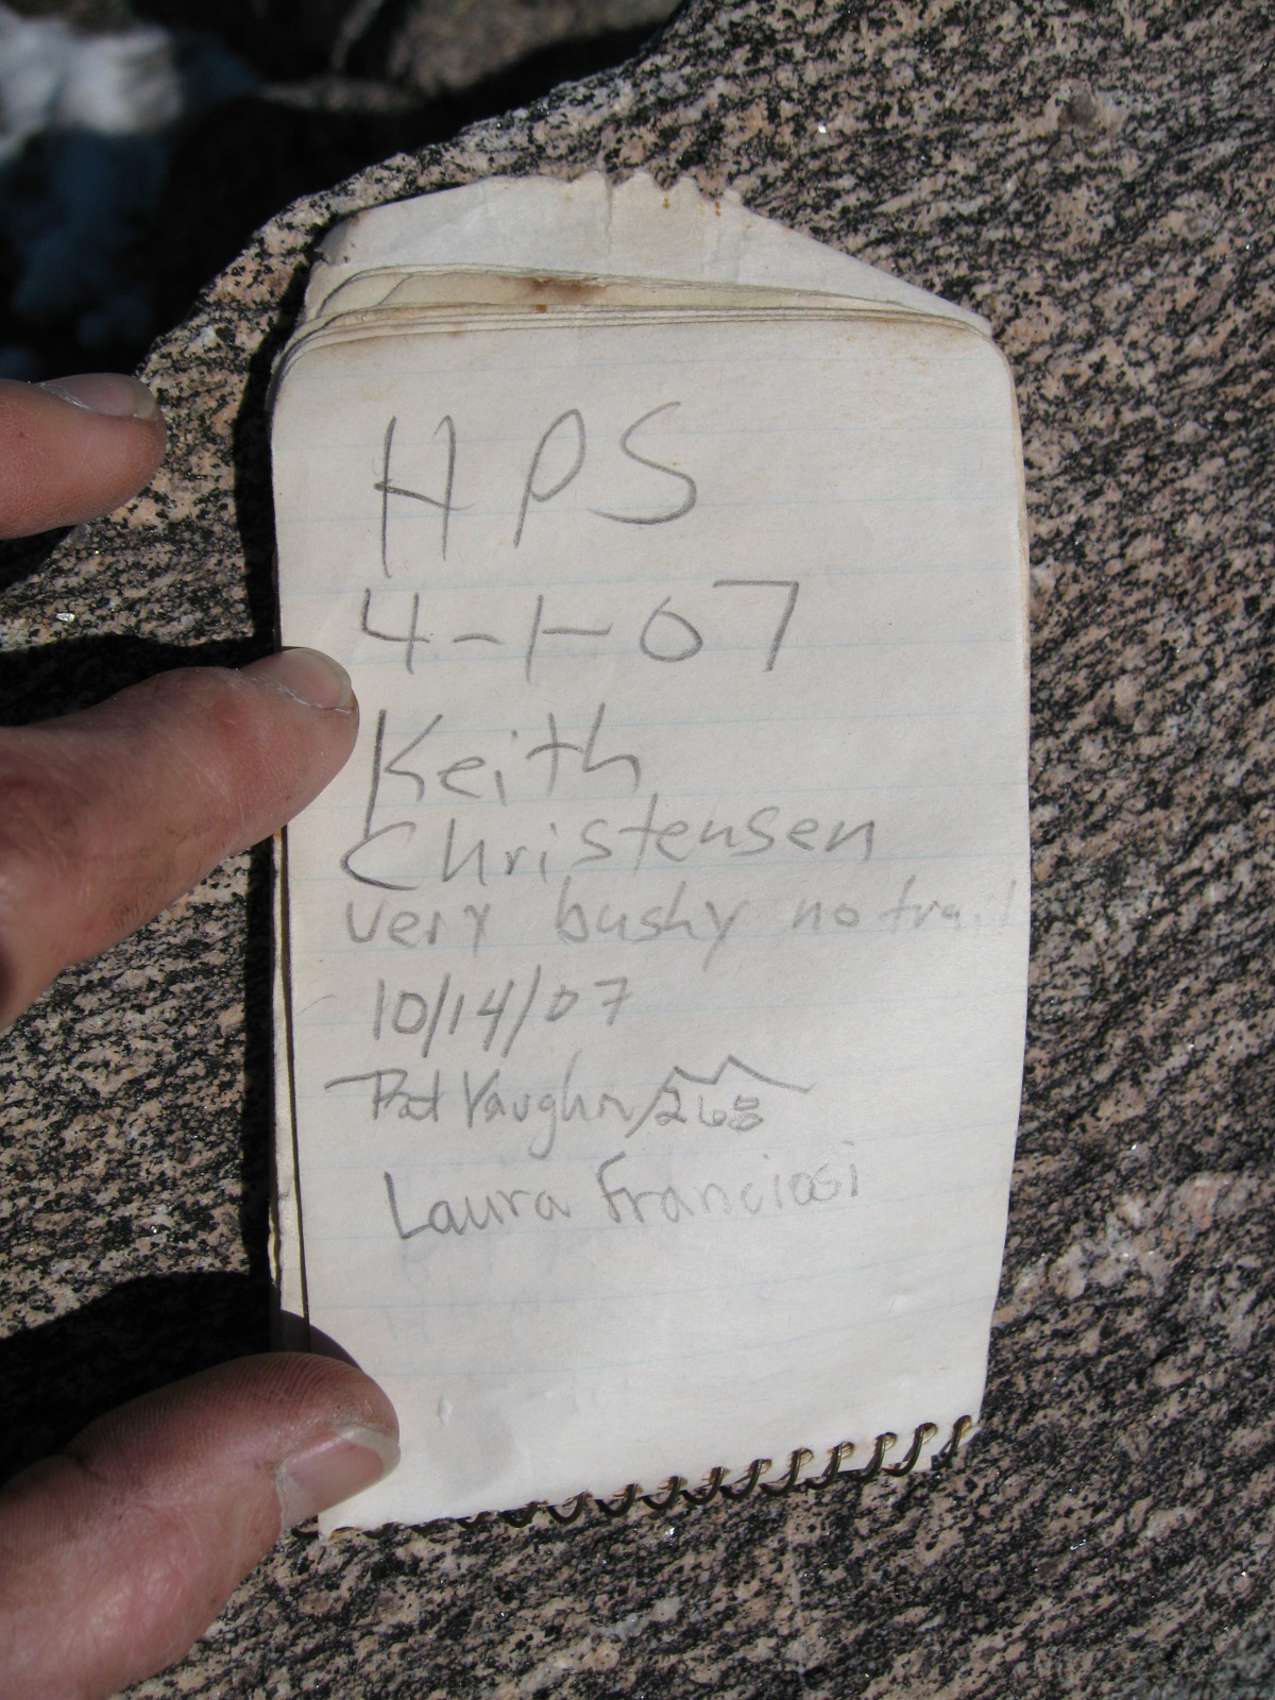 HPS
4-1-07
Keith
Christensen
very bushy no trail
10/14/07
Pat Vaughn
Laura Franciosi